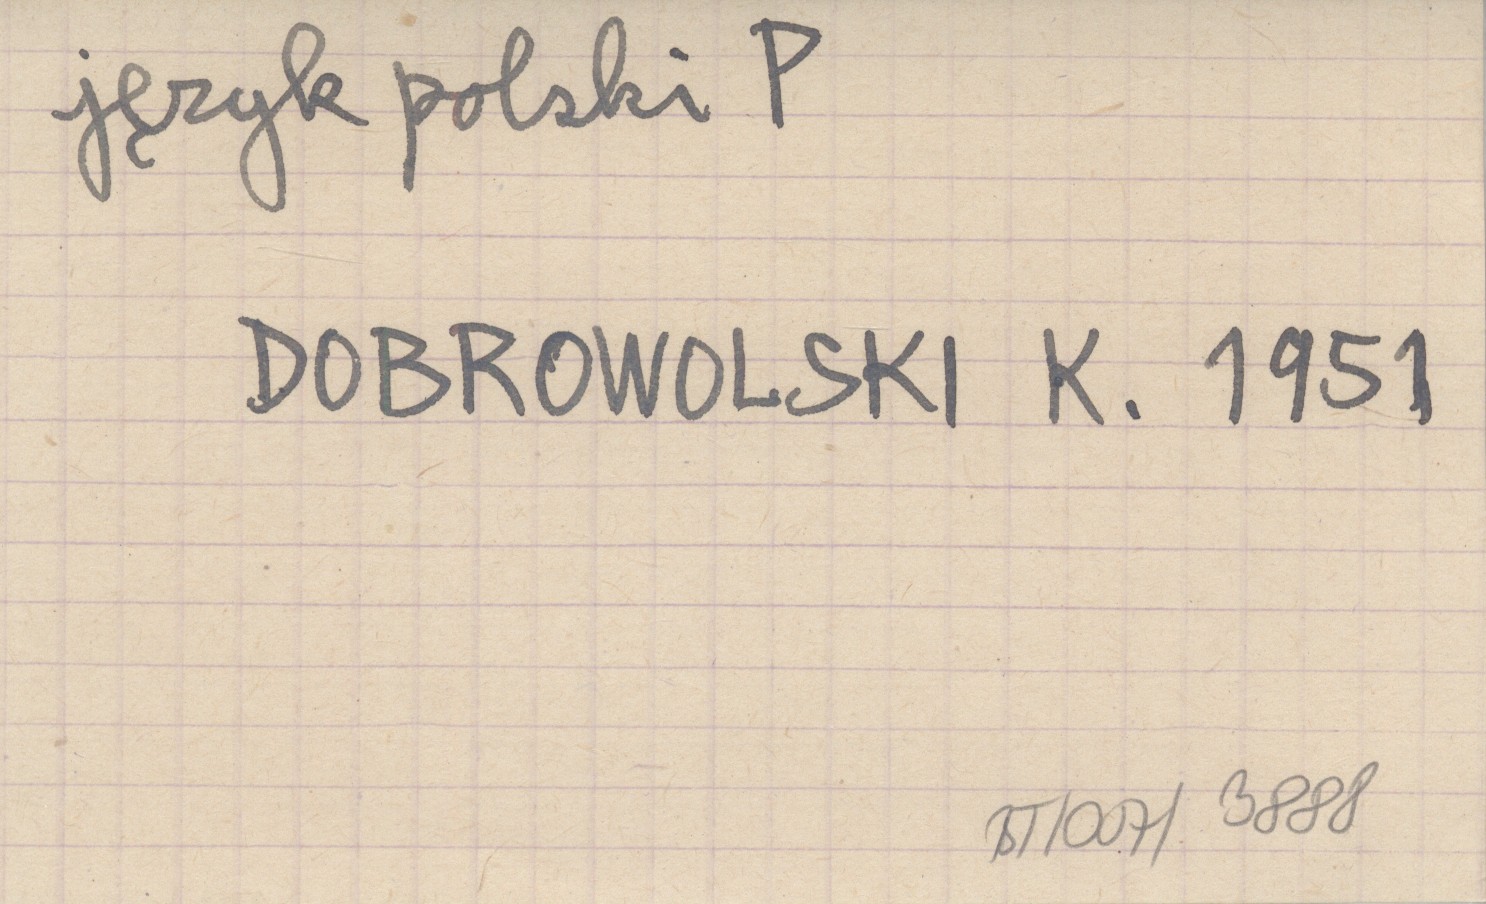 język polski P
DOBROWOLSKI K. 1951
BT/007/ 3888